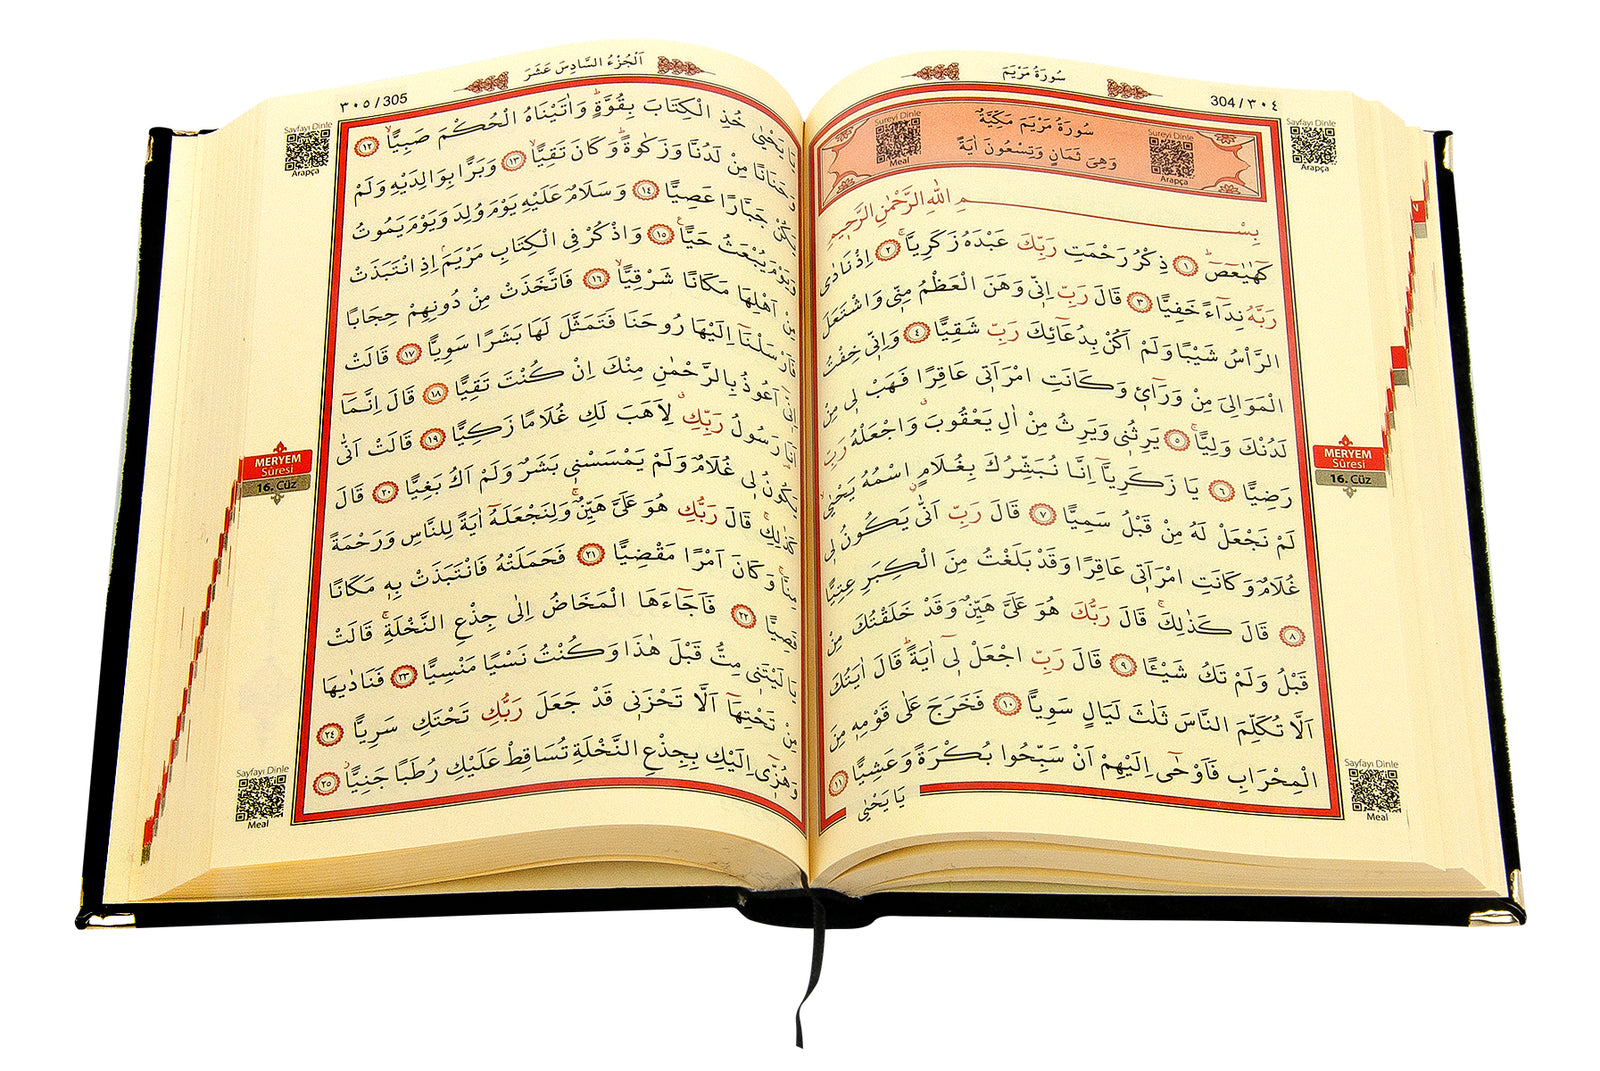 سُورَةُ مَرْيَمَ
304 / ٣٠٤
Sayfayı Dinle
Arapça
Sureyi Dinle
Meal
Sureyi Dinle
Arapça
سُورَةُ مَرْيَمَ مَكِّيَّةٌ
وَهِيَ ثَمَانٍ وَتِسْعُونَ اٰيَةً
بِسْمِ اللّٰهِ الرَّحْمٰنِ الرَّحِيمِ
كٓهٰيٰعٓصٓ ﴿١﴾ ذِكْرُ رَحْمَتِ رَبِّكَ عَبْدَهُ زَكَرِيَّاۚ ﴿٢﴾ اِذْ نَادٰى
رَبَّهُ نِدَٓاءً خَفِيًّا ﴿٣﴾ قَالَ رَبِّ اِنّ۪ي وَهَنَ الْعَظْمُ مِنّ۪ي وَاشْتَعَلَ
الرَّأْسُ شَيْبًا وَلَمْ اَكُنْ بِدُعَٓائِكَ رَبِّ شَقِيًّا ﴿٤﴾ وَاِنّ۪ي خِفْتُ
الْمَوَالِيَ مِنْ وَرَٓائ۪ي وَكَانَتِ امْرَاَت۪ي عَاقِرًا فَهَبْ ل۪ي مِنْ
لَدُنْكَ وَلِيًّاۙ ﴿٥﴾ يَرِثُن۪ي وَيَرِثُ مِنْ اٰلِ يَعْقُوبَۗ وَاجْعَلْهُ رَبِّ
رَضِيًّا ﴿٦﴾ يَا زَكَرِيَّٓا اِنَّا نُبَشِّرُكَ بِغُلَامٍۨ اسْمُهُ يَحْيٰىۙ
لَمْ نَجْعَلْ لَهُ مِنْ قَبْلُ سَمِيًّا ﴿٧﴾ قَالَ رَبِّ اَنّٰى يَكُونُ ل۪ي
غُلَامٌ وَكَانَتِ امْرَاَت۪ي عَاقِرًا وَقَدْ بَلَغْتُ مِنَ الْكِبَرِ عِتِيًّا
﴿٨﴾ قَالَ كَذٰلِكَۚ قَالَ رَبُّكَ هُوَ عَلَيَّ هَيِّنٌ وَقَدْ خَلَقْتُكَ مِنْ
قَبْلُ وَلَمْ تَكُ شَيْـًٔا ﴿٩﴾ قَالَ رَبِّ اجْعَلْ ل۪ٓي اٰيَةًۜ قَالَ اٰيَتُكَ
اَلَّا تُكَلِّمَ النَّاسَ ثَلٰثَ لَيَالٍ سَوِيًّا ﴿١٠﴾ فَخَرَجَ عَلٰى قَوْمِه۪ مِنَ
الْمِحْرَابِ فَاَوْحٰٓى اِلَيْهِمْ اَنْ سَبِّحُوا بُكْرَةً وَعَشِيًّا ﴿١١﴾
يَا يَحْيٰى
MERYEM
Sûresi
16. Cüz
Sayfayı Dinle
Meal
اَلْجُزْءُ السَّادِسَ عَشَرَ
٣٠٥ / 305
Sayfayı Dinle
Arapça
يَا يَحْيٰى خُذِ الْكِتَابَ بِقُوَّةٍۜ وَاٰتَيْنَاهُ الْحُكْمَ صَبِيًّاۙ ﴿١٢﴾
وَحَنَانًا مِنْ لَدُنَّا وَزَكٰوةًۜ وَكَانَ تَقِيًّاۙ ﴿١٣﴾ وَبَرًّا بِوَالِدَيْهِ وَلَمْ
يَكُنْ جَبَّارًا عَصِيًّا ﴿١٤﴾ وَسَلَامٌ عَلَيْهِ يَوْمَ وُلِدَ وَيَوْمَ يَمُوتُ
وَيَوْمَ يُبْعَثُ حَيًّا۟ ﴿١٥﴾ وَاذْكُرْ فِي الْكِتَابِ مَرْيَمَۢ اِذِ انْتَبَذَتْ
مِنْ اَهْلِهَا مَكَانًا شَرْقِيًّاۙ ﴿١٦﴾ فَاتَّخَذَتْ مِنْ دُونِهِمْ حِجَابًا
فَاَرْسَلْنَٓا اِلَيْهَا رُوحَنَا فَتَمَثَّلَ لَهَا بَشَرًا سَوِيًّا ﴿١٧﴾ قَالَتْ
اِنّ۪ٓي اَعُوذُ بِالرَّحْمٰنِ مِنْكَ اِنْ كُنْتَ تَقِيًّا ﴿١٨﴾ قَالَ اِنَّمَٓا
اَنَا۬ رَسُولُ رَبِّكِۗ لِاَهَبَ لَكِ غُلَامًا زَكِيًّا ﴿١٩﴾ قَالَتْ اَنّٰى
يَكُونُ ل۪ي غُلَامٌ وَلَمْ يَمْسَسْن۪ي بَشَرٌ وَلَمْ اَكُ بَغِيًّا ﴿٢٠﴾ قَالَ
كَذٰلِكِۚ قَالَ رَبُّكِ هُوَ عَلَيَّ هَيِّنٌۚ وَلِنَجْعَلَهُٓ اٰيَةً لِلنَّاسِ وَرَحْمَةً
مِنَّاۚ وَكَانَ اَمْرًا مَقْضِيًّا ﴿٢١﴾ فَحَمَلَتْهُ فَانْتَبَذَتْ بِه۪ مَكَانًا
قَصِيًّا ﴿٢٢﴾ فَاَجَٓاءَهَا الْمَخَاضُ اِلٰى جِذْعِ النَّخْلَةِۚ قَالَتْ
يَا لَيْتَن۪ي مِتُّ قَبْلَ هٰذَا وَكُنْتُ نَسْيًا مَنْسِيًّا ﴿٢٣﴾ فَنَادٰيهَا
مِنْ تَحْتِهَٓا اَلَّا تَحْزَن۪ي قَدْ جَعَلَ رَبُّكِ تَحْتَكِ سَرِيًّا ﴿٢٤﴾
وَهُزّ۪ٓي اِلَيْكِ بِجِذْعِ النَّخْلَةِ تُسَاقِطْ عَلَيْكِ رُطَبًا جَنِيًّاۘ ﴿٢٥﴾
MERYEM
Sûresi
16. Cüz
Sayfayı Dinle
Meal